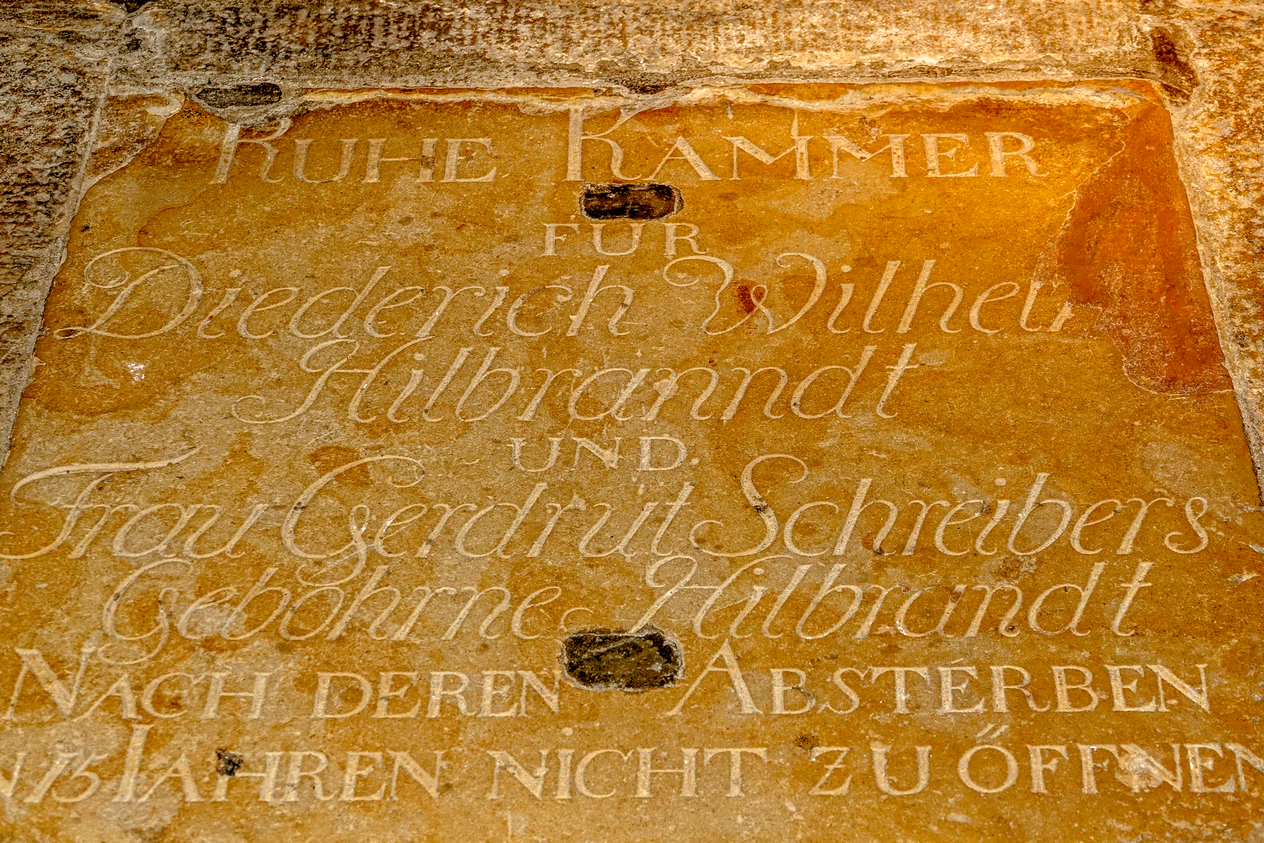 RUHE KAMMER
FUR
Diederich Wilhelm
Hilbranndt
UND
Frau Gerdrut Schreibers
Gebohrne Hilbrandt
NACH DEREN ABSTERBEN
IN 15 JAHREN NICHT ZU ÖFFNEN